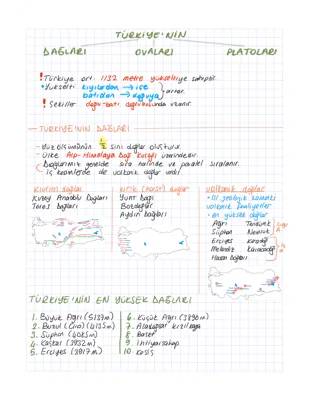 TÜRKİYE'NİN
DAĞLARI OVALARI PLATOLARI
! Türkiye ort. 1132 metre yükseltiye sahiptir.
• Yükselti kıyılardan → içe
batıdan → doğuya artar.
! Şekiller doğu-batı doğrultusunda uzanır.
TÜRKİYE'NİN DAĞLARI
- Yüz ölçümünün 1/2 sini dağlar oluşturur.
- Ülke Alp-Himalaya Dağ kuşağı üzerindedir.
- Dağlarımız genelde sıra halinde ve paralel sıralanır.
İç kesimlerde de volkanik dağlar vardır.
Kıvrım dağlar
Kuzey Anadolu Dağları
Toros Dağları
Kırık (horst) dağlar
Yunt Dağı
Bozdağlar
Aydın Dağları
Volkanik dağlar
• III. jeolojik
volkanik faaliyetler
• En yüksek dağlar
Ağrı Tendürek
Süphan Nemrut
Erciyes Karadağ
Melendiz Karacadağ
Hasan Dağları
TÜRKİYE'NİN EN YÜKSEK DAĞLARI
1. Büyük Ağrı (5137m)
2. Buzul (Cilo) (4135m)
3. Süphan (4058m)
4. Kaçkar (3932m)
5. Erciyes (3917m)
6. Küçük Ağrı (3896m)
7.
8.
9.
10. Keşiş